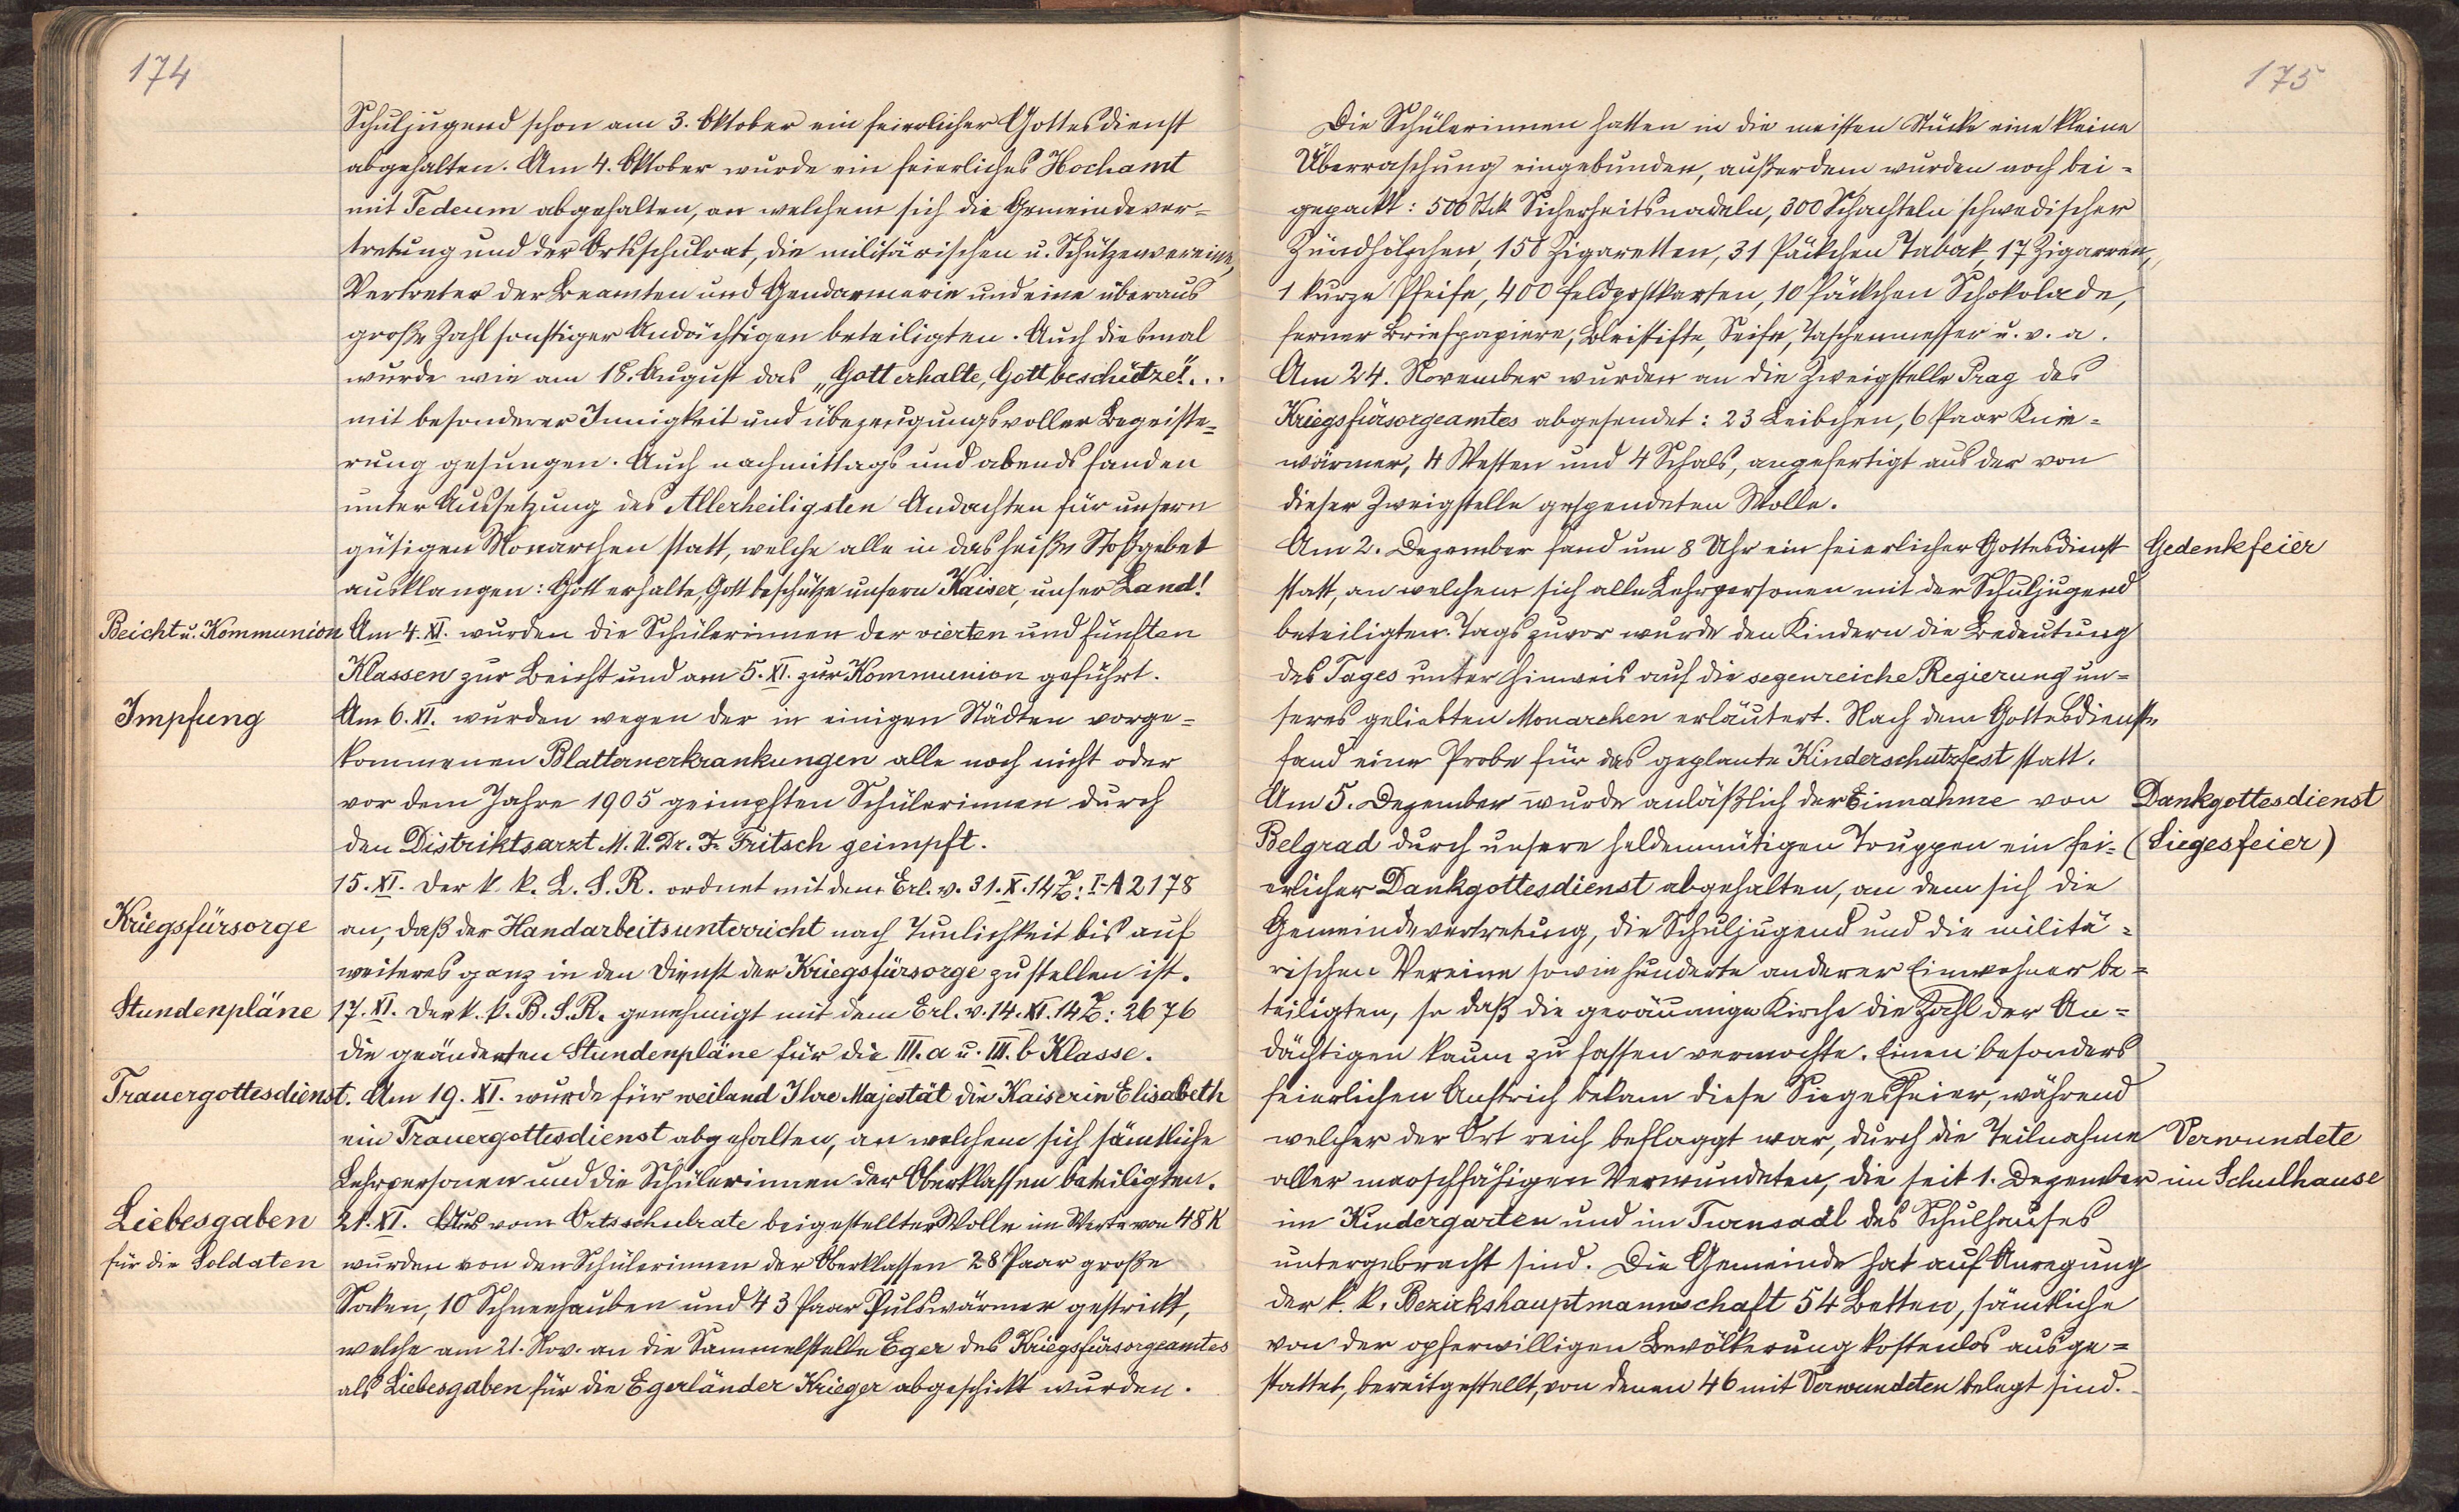 174
Schuljugend schon am 3. Oktober ein feierlicher Gottesdienst
abgehalten. Am 4. Oktober wurde ein feierliches Hochamt
mit Tedeum abgehalten, an welchem sich die Gemeindever=
tretung und der Ortsschulrat, die militärischen u. Schützenvereine,
Vertreter der Beamten und Gendarmerie und eine überaus
große Zahl sonstiger Andächtigen beteiligten. Auch diesmal
wurde wie am 18. August das „Gott erhalte, Gott beschütze!"...
mit besonderer Innigkeit und überzeugungsvoller Begeiste=
rung gesungen. Auch nachmittags und abends fanden
unter Aussetzung des Allerheiligsten Andachten für unsern
gütigen Monarchen statt, welche alle in das heiße Stoßgebet
ausklangen: Gott erhalte, Gott beschütze unsern Kaiser, unser Land!
Beicht u. Kommunion Am 4. XI. wurden die Schülerinnen der vierten und fünften
Klassen zur Beicht und am 5. XI. zur Kommunion geführt.
Impfung Am 6. XI. wurden wegen der in einigen Städten vorge=
kommenen Blatternerkrankungen alle noch nicht oder
vor dem Jahre 1905 geimpften Schülerinnen durch
den Distriktsarzt M. U. Dr. Fr. Fritsch geimpft.
15. XI. Der k. k. L. S. R. ordnet mit dem Erl. v. 31. X. 14 Z: I-A 2178
Kriegsfürsorge an, daß der Handarbeitsunterricht nach Tunlichkeit bis auf
weiteres ganz in den Dienst der Kriegsfürsorge zu stellen ist.
Stundenpläne 17. XI. Der k. k. B. S. R. genehmigt mit dem Erl. v. 14. XI. 14 Z: 2676
die geänderten Stundenpläne für die III. a u. III. b Klasse.
Trauergottesdienst. Am 19. XI. wurde für weiland Ihre Majestät die Kaiserin Elisabeth
ein Trauergottesdienst abgehalten, an welchem sich sämtliche
Lehrpersonen und die Schülerinnen der Oberklassen beteiligten.
Liebesgaben 21. XI. Aus vom Ortsschulrate beigestellter Wolle im Werte von 48 K
für die Soldaten wurden von den Schülerinnen der Oberklassen 28 Paar große
Socken, 10 Schneehauben und 43 Paar Pulswärmer gestrickt,
welche am 21. Nov. an die Sammelstelle Eger des Kriegsfürsorgeamtes
als Liebesgaben für die Egerländer Krieger abgeschickt wurden.
175
Die Schülerinnen hatten in die meisten Stücke eine kleine
Überraschung eingebunden, außerdem wurden noch bei=
gepackt: 500 Stk Sicherheitsnadeln, 300 Schachteln schwedischer
Zündhölzchen, 150 Zigaretten, 31 Päckchen Tabak, 17 Zigarren,
1 kurze Pfeife, 400 Feldpostkarten, 10 Päckchen Schokolade,
ferner Briefpapiere, Bleistifte, Seife, Taschenmesser u. v. a.
Am 24. November wurden an die Zweigstelle Prag des
Kriegsfürsorgeamtes abgesendet: 23 Leibchen, 6 Paar Knie=
wärmer, 4 Westen und 4 Schals, angefertigt aus der von
dieser Zweigstelle gespendeten Wolle.
Am 2. Dezember fand um 8 Uhr ein feierlicher Gottesdienst Gedenkfeier
statt, an welchem sich alle Lehrpersonen mit der Schuljugend
beteiligten. Tags zuvor wurde den Kindern die Bedeutung
des Tages unter Hinweis auf die segenreiche Regierung un=
seres geliebten Monarchen erläutert. Nach dem Gottesdienste
fand eine Probe für das geplante Kinderschutzfest statt.
Am 5. Dezember wurde anläßlich der Einnahme von Dankgottesdienst
Belgrad durch unsere heldenmütigen Truppen ein fei= (Siegesfeier)
erlicher Dankgottesdienst abgehalten, an dem sich die
Gemeindevertretung, die Schuljugend und die militä=
rischen Vereine sowie hunderte anderer Einwohner be=
teiligten, so daß die geräumige Kirche die Zahl der An=
dächtigen kaum zu fassen vermochte. Einen besonders
feierlichen Anstrich bekam diese Siegesfeier, während
welcher der Ort reich beflaggt war, durch die Teilnahme Verwundete
aller marschfähigen Verwundeten, die seit 1. Dezember im Schulhause
im Kindergarten und im Turnsaal des Schulhauses
untergebracht sind. Die Gemeinde hat auf Anregung
der k. k. Bezirkshauptmannschaft 54 Betten, sämtliche
von der opferwilligen Bevölkerung kostenlos ausge=
stattet, bereitgestellt, von denen 46 mit Verwundeten belegt sind.